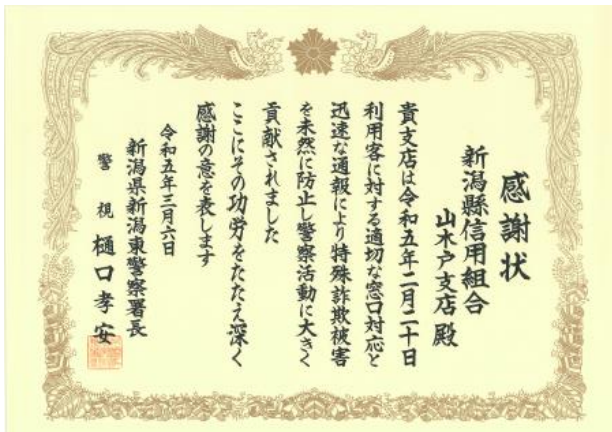 感謝状
新潟縣信用組合
山木戸支店 殿
貴支店は令和五年二月二十日
利用客に対する適切な窓口対応と
迅速な通報により特殊詐欺被害
を未然に防止し警察活動に大きく
貢献されました
ここにその功労をたたえ深く
感謝の意を表します
令和五年三月六日
新潟県新潟東警察署長
警視 樋口孝安